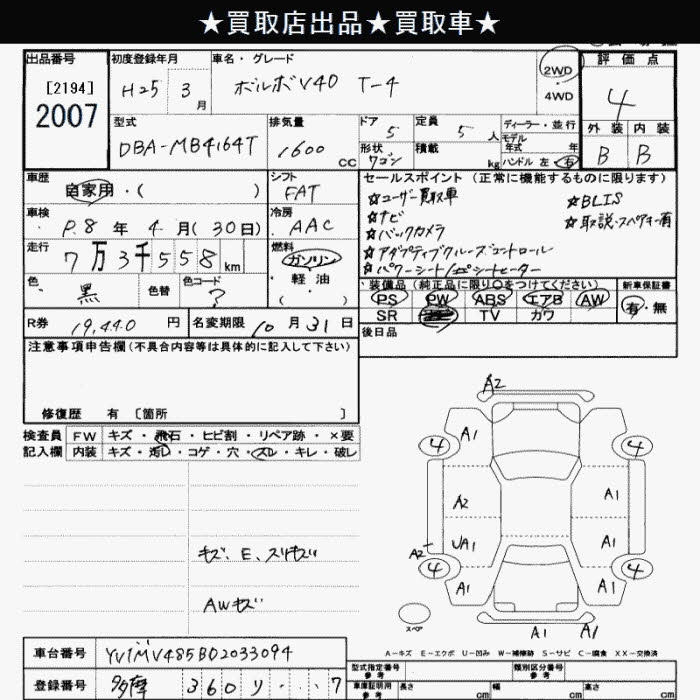 ★買取店出品★買取車★
出品番号 初度登録年月 車名・グレード 評価点
[2194] H25 3月 ボルボV40 T-4 2WD・4WD 4
2007
型式 排気量 ドア 定員 ディーラー・並行 外装 内装
DBA-MB4164T 1600CC 5 5人 モデル年式 年 B B
形状 ワゴン 積載 kg ハンドル 左・右
車歴 自家用・( ) シフト FAT セールスポイント (正常に機能するものに限ります)
☆ユーザー買取車 ☆BLIS
車検 R8年4月(30日) 冷房 AAC ☆ナビ ☆取説・スペアキー有
☆バックカメラ
走行 7万3千558km 燃料 ガソリン・軽油・( ) ☆アダプティブクルーズコントロール
☆パワーシート/シートヒーター
色 黒 色替 色コード ?
装備品(純正品に限り〇をつけてください) 新車保証書
PS PW ABS エアB AW 有・無
SR TV カワ
R券 19,440円 名変期限 10月31日
後日品
注意事項申告欄(不具合内容等は具体的に記入して下さい)
修復歴 有 [箇所 ]
検査員 FW キズ・飛石・ヒビ割・リペア跡・×要
記入欄 内装 キズ・汚レ・コゲ・穴・スレ・キレ・破レ
A2
A1
4 4
A2 A1
A2 UA1 A1
4 4
A1 A1
キズ、E、スリキズ
AWキズ
スペア
A1 A1
A-キズ E-エクボ U-凹み W-補修跡 S-サビ C-腐食 XX-交換済
車台番号 YV1MV485BD2033094
型式指定番号 参考 類別区分番号 参考
登録番号 多摩 360 リ ・・・7
車庫証明用 参考 長さ cm 幅 cm 高さ cm